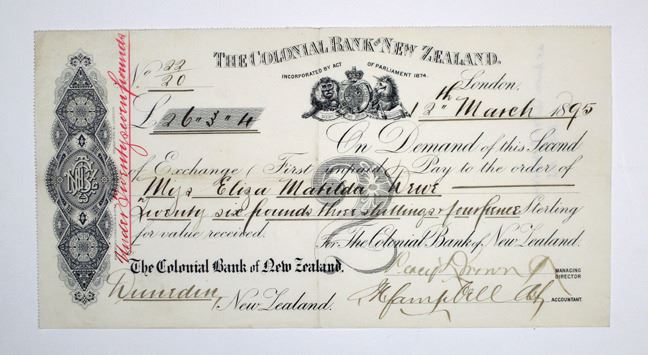 THE COLONIAL BANK OF NEW ZEALAND.
INCORPORATED BY ACT OF PARLIAMENT 1874.
No 22/20
London.
£26"3"4
12th March 1895
On Demand of this Second
of Exchange (First unpaid) Pay to the order of
Miss Eliza Matilda
Twenty six pounds three shillings & fourpence Sterling
for value received.
For The Colonial Bank of New Zealand.
The Colonial Bank of New Zealand.
MANAGING DIRECTOR
Dunedin, New Zealand.
Campbell
ACCOUNTANT
Under Twentyseven pounds